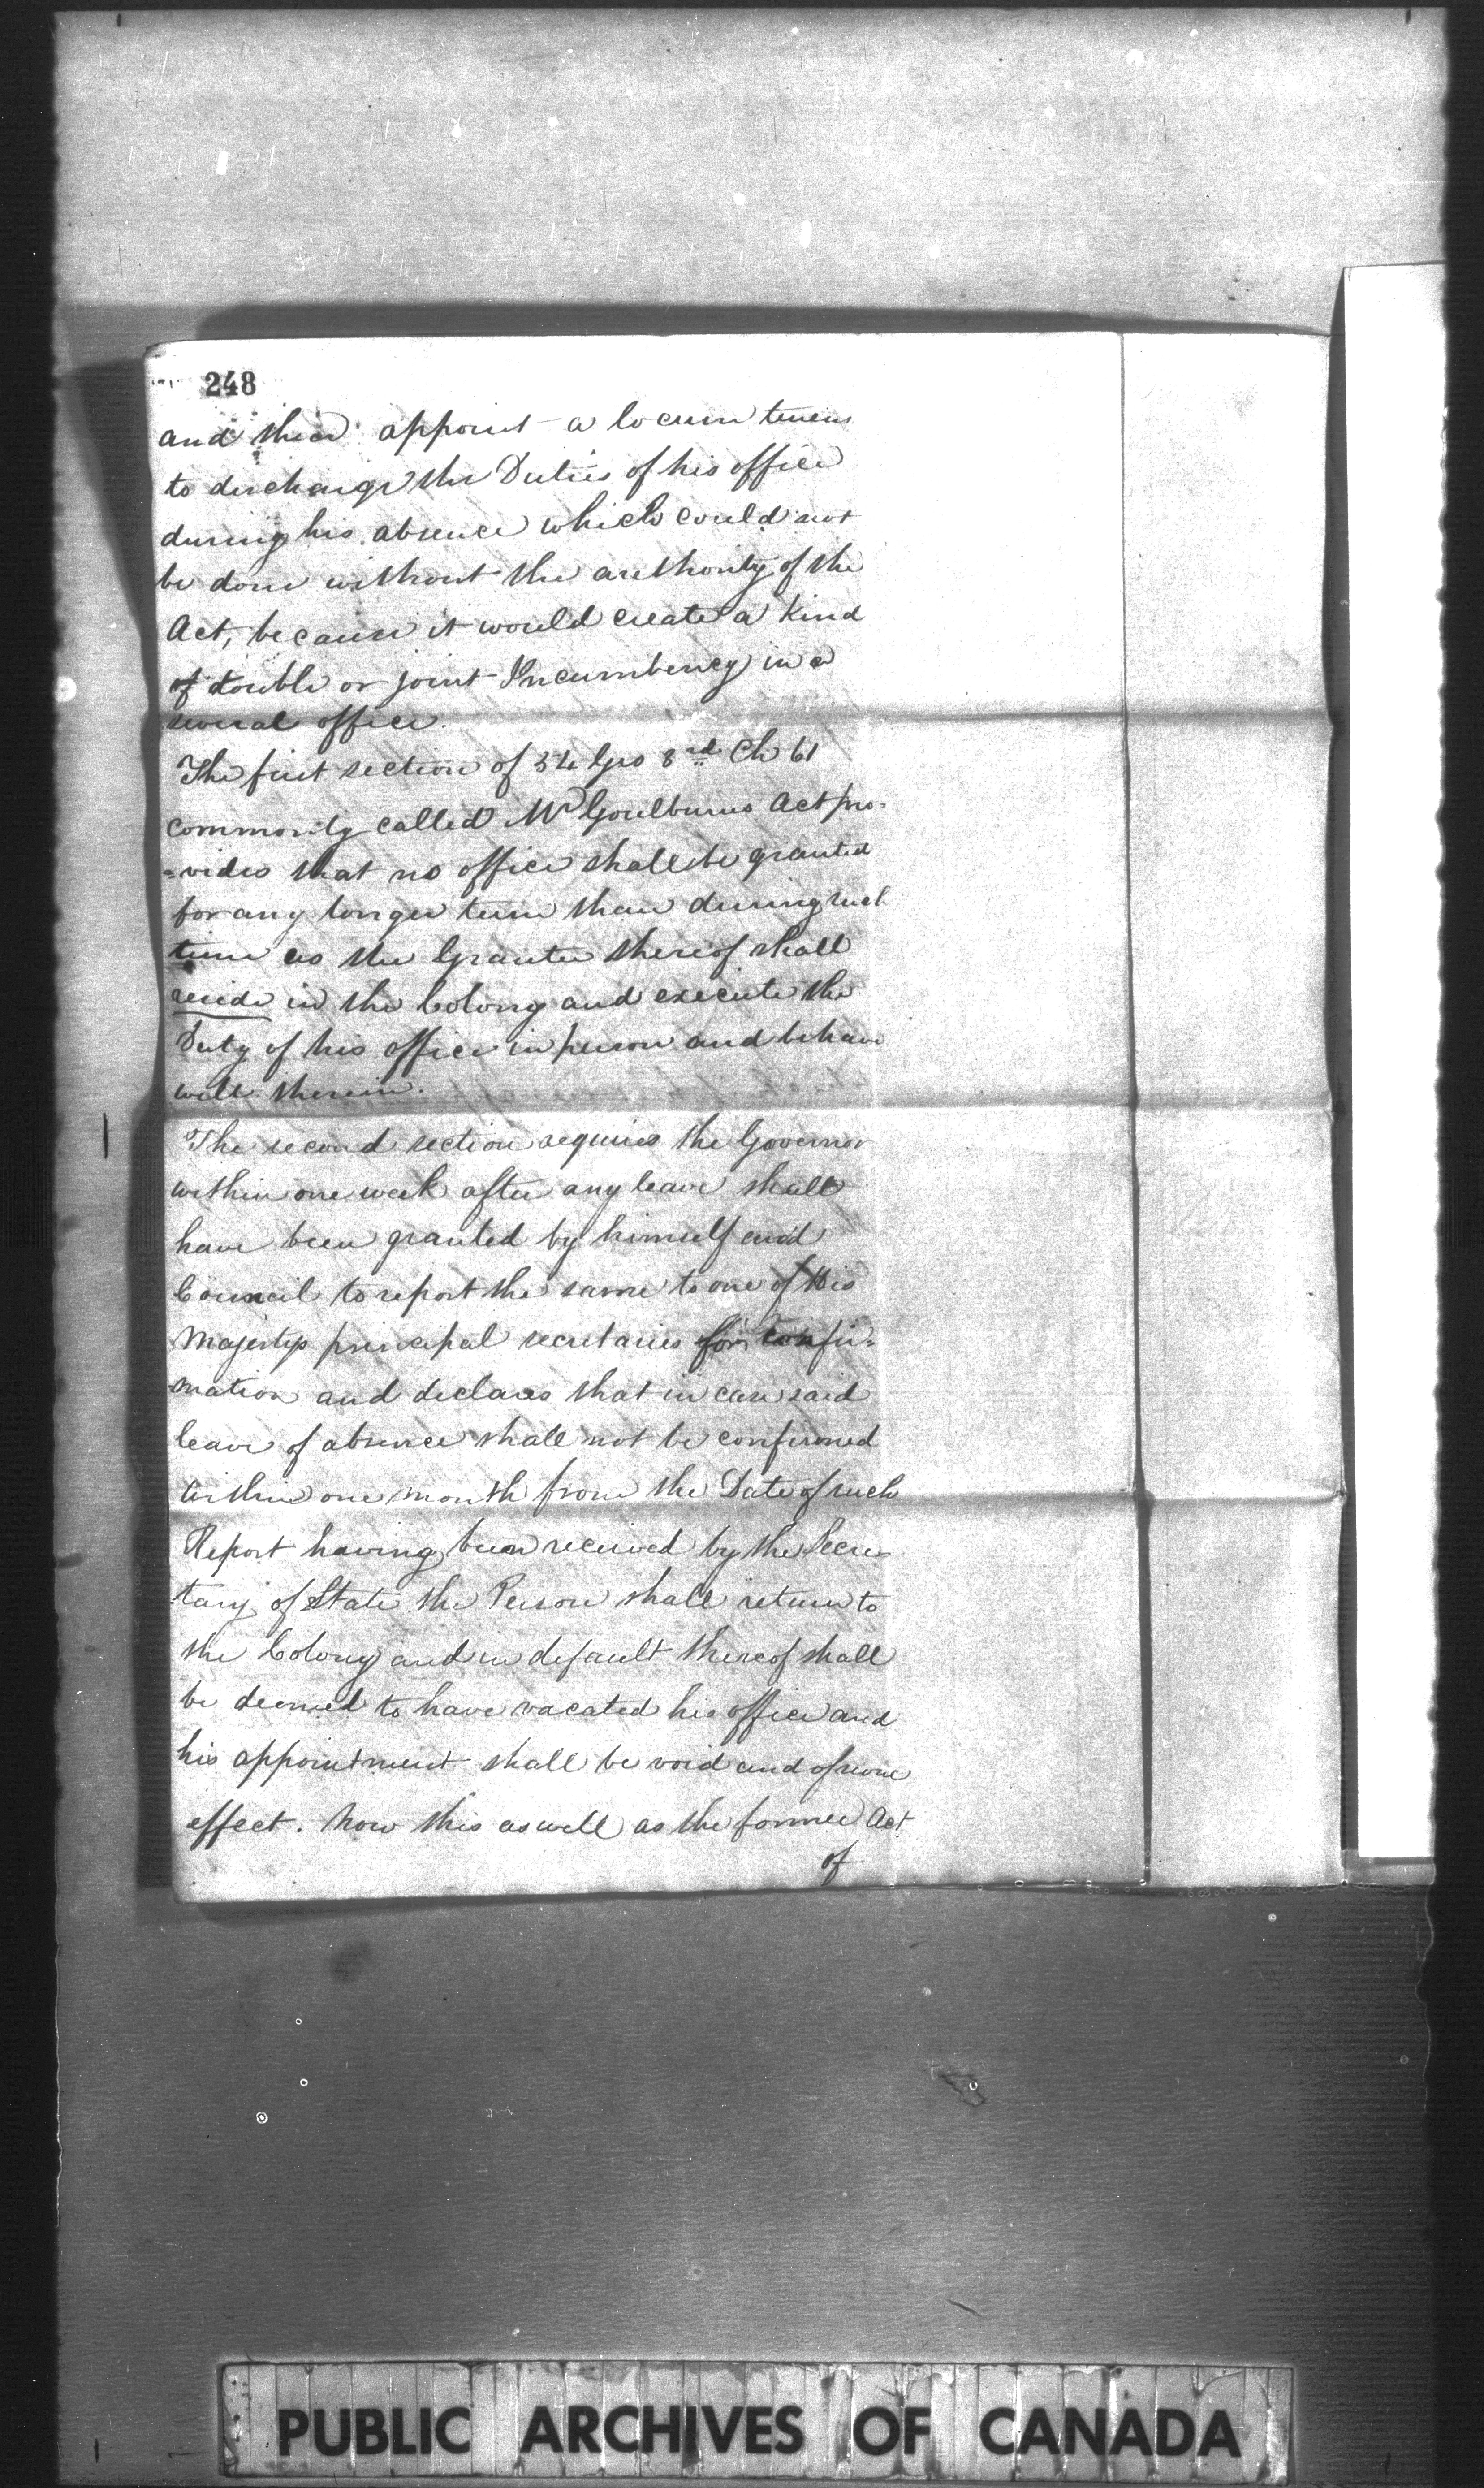 248
and then appoint a locum tenens
to discharge the Duties of his office
during his absence which could not
be done without the authority of the
Act, because it would create a kind
of double or joint Incumbency in a
several office.
The first section of 54 Geo 3rd Ch 61
commonly called Mr Goulburns Act pro-
=vides that no office shall be granted
for any longer term than during such
time as the Grantee thereof shall
reside in the Colony and execute the
Duty of his office in person and behave
well therein.
The second section requires the Governor
within one week after any leave shall
have been granted by himself and
Council to report the same to one of His
Majestys principal secretaries for confir-
mation and declares that in case said
leave of absence shall not be confirmed
within one month from the Date of such
Report having been received by the Secre-
tary of State the Person shall return to
the Colony and in default thereof shall
be deemed to have vacated his office and
his appointment shall be void and of none
effect. Now this as well as the former Act
of
PUBLIC ARCHIVES OF CANADA